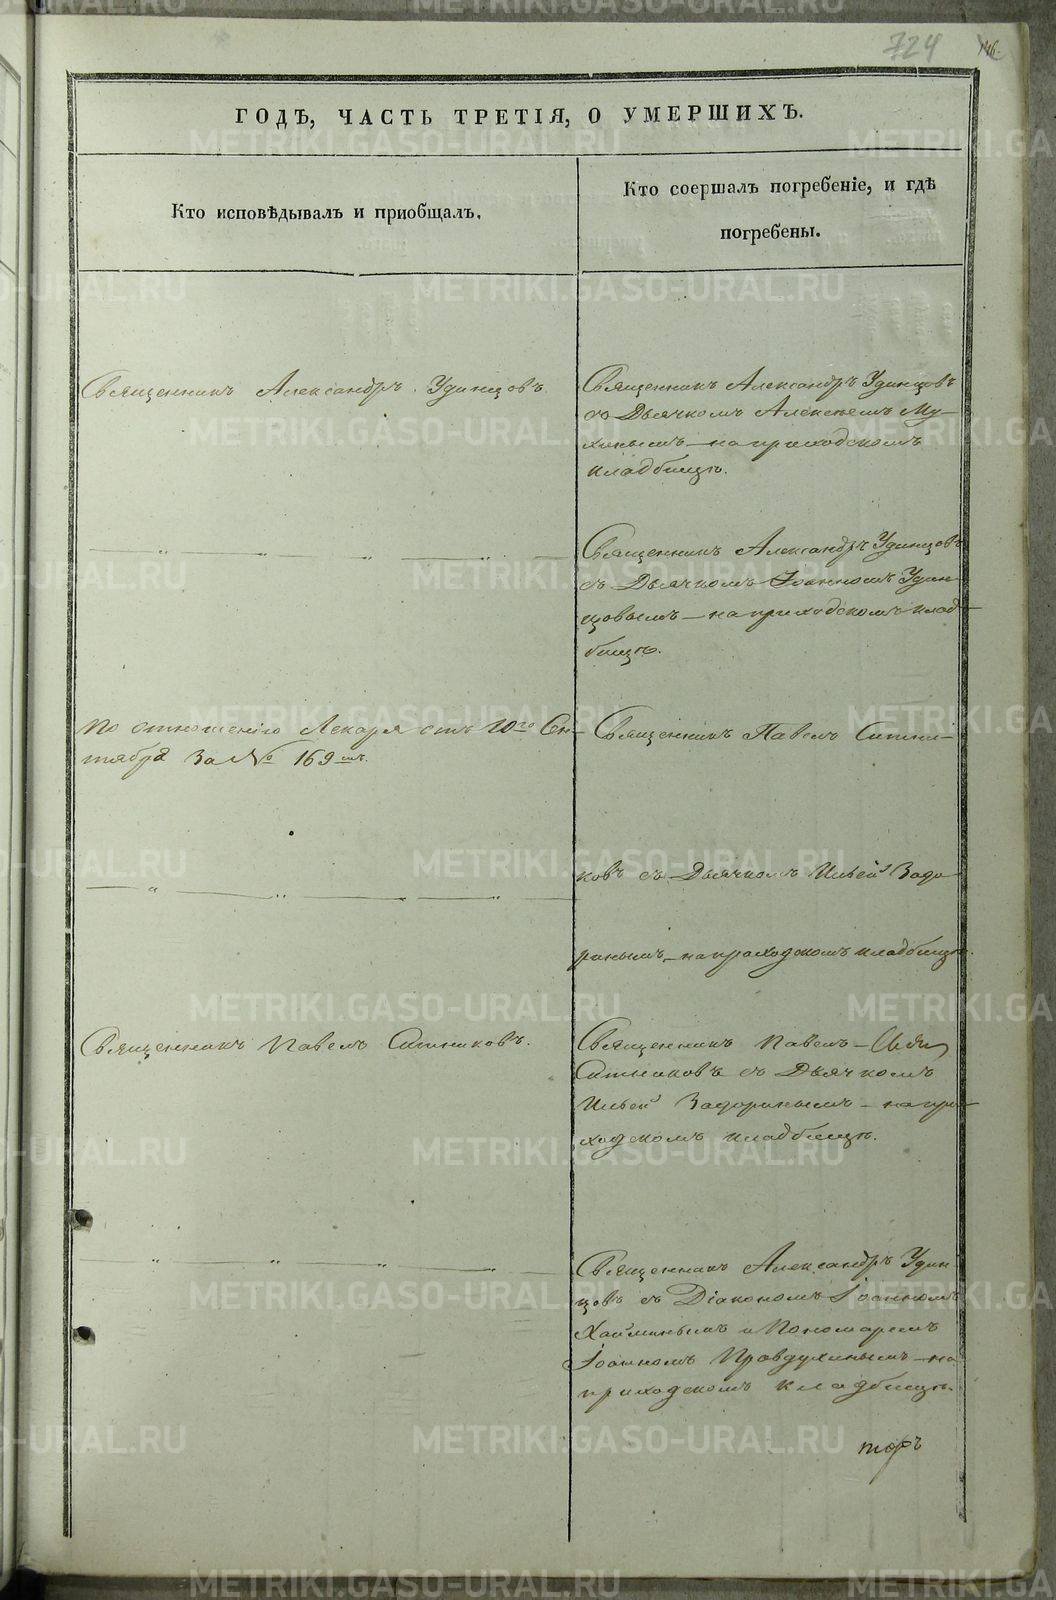 724
146.
ГОДЪ, ЧАСТЬ ТРЕТІЯ, О УМЕРШИХЪ.
Кто исповѣдывалъ и приобщалъ.
Кто соершалъ погребеніе, и гдѣ
погребены.
Священникъ Александръ Удинцовъ
Священникъ Александръ Удинцовъ
съ Дьячкомъ Алексѣемъ Му-
хинымъ – на приходскомъ
кладбищѣ.
Священникъ Александръ Удинцовъ
съ Дьячкомъ Іоанномъ Удин
цовымъ – на приходскомъ клад-
бищѣ.
По отношенію Лекаря отъ 10го Сен-
тября За № 169мъ.
Священникъ Павелъ Ситни-
ковъ съ Дьячкомъ Ильей Задо-
ринымъ – на приходскомъ кладбищѣ.
Священникъ Павелъ Ситниковъ.
Священникъ Павелъ –
Ситниковъ съ Дьячкомъ
Ильей Задоринымъ – на при-
ходскомъ кладбищѣ.
Священникъ Александръ Удин-
цовъ съ Діакономъ Іоанномъ
Хайминымъ и Пономаремъ
Іоанномъ Правдухинымъ – на
приходскомъ кладбищѣ.
METRIKI.GASO-URAL.RU